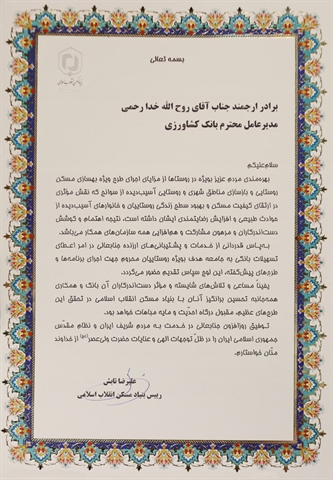 بسمه تعالی
برادر ارجمند جناب آقای روح الله خدا رحمی
مدیرعامل محترم بانک کشاورزی
سلام‌علیکم
بهره‌مندی مردم عزیز بویژه در روستاها از مزایای اجرای طرح ویژه بهسازی مسکن
روستایی و بازسازی مناطق شهری و روستایی آسیب‌دیده از سوانح که نقش مؤثری
در ارتقای کیفیت مسکن و بهبود سطح زندگی روستاییان و خانوارهای آسیب‌دیده از
حوادث طبیعی و افزایش رضایتمندی ایشان داشته است، نتیجه اهتمام و کوشش
دست‌اندرکاران و مرهون مشارکت و هم‌افزایی همه سازمان‌های همکار می‌باشد.
به‌پاس قدردانی از خدمات و پشتیبانی‌های ارزنده جنابعالی در امر اعطای
تسهیلات بانکی به جامعه هدف بویژه روستاییان محروم جهت اجرای برنامه‌ها و
طرح‌های پیش‌گفته، این لوح سپاس تقدیم حضور می‌گردد.
یقیناً مساعی و تلاش‌های شایسته و مؤثر دست‌اندرکاران آن بانک و همکاری
همه‌جانبه تحسین برانگیز آنان با بنیاد مسکن انقلاب اسلامی در تحقق این
طرح‌های عظیم، مقبول درگاه احدیت و مایه مباهات خواهد بود.
توفیق روزافزون جنابعالی در خدمت به مردم شریف ایران و نظام مقدّس
جمهوری اسلامی ایران را در ظلّ توجهات الهی و عنایات حضرت ولی‌عصر(عج) از خداوند
منّان خواستارم.
علیرضا تابش
رییس بنیاد مسکن انقلاب اسلامی